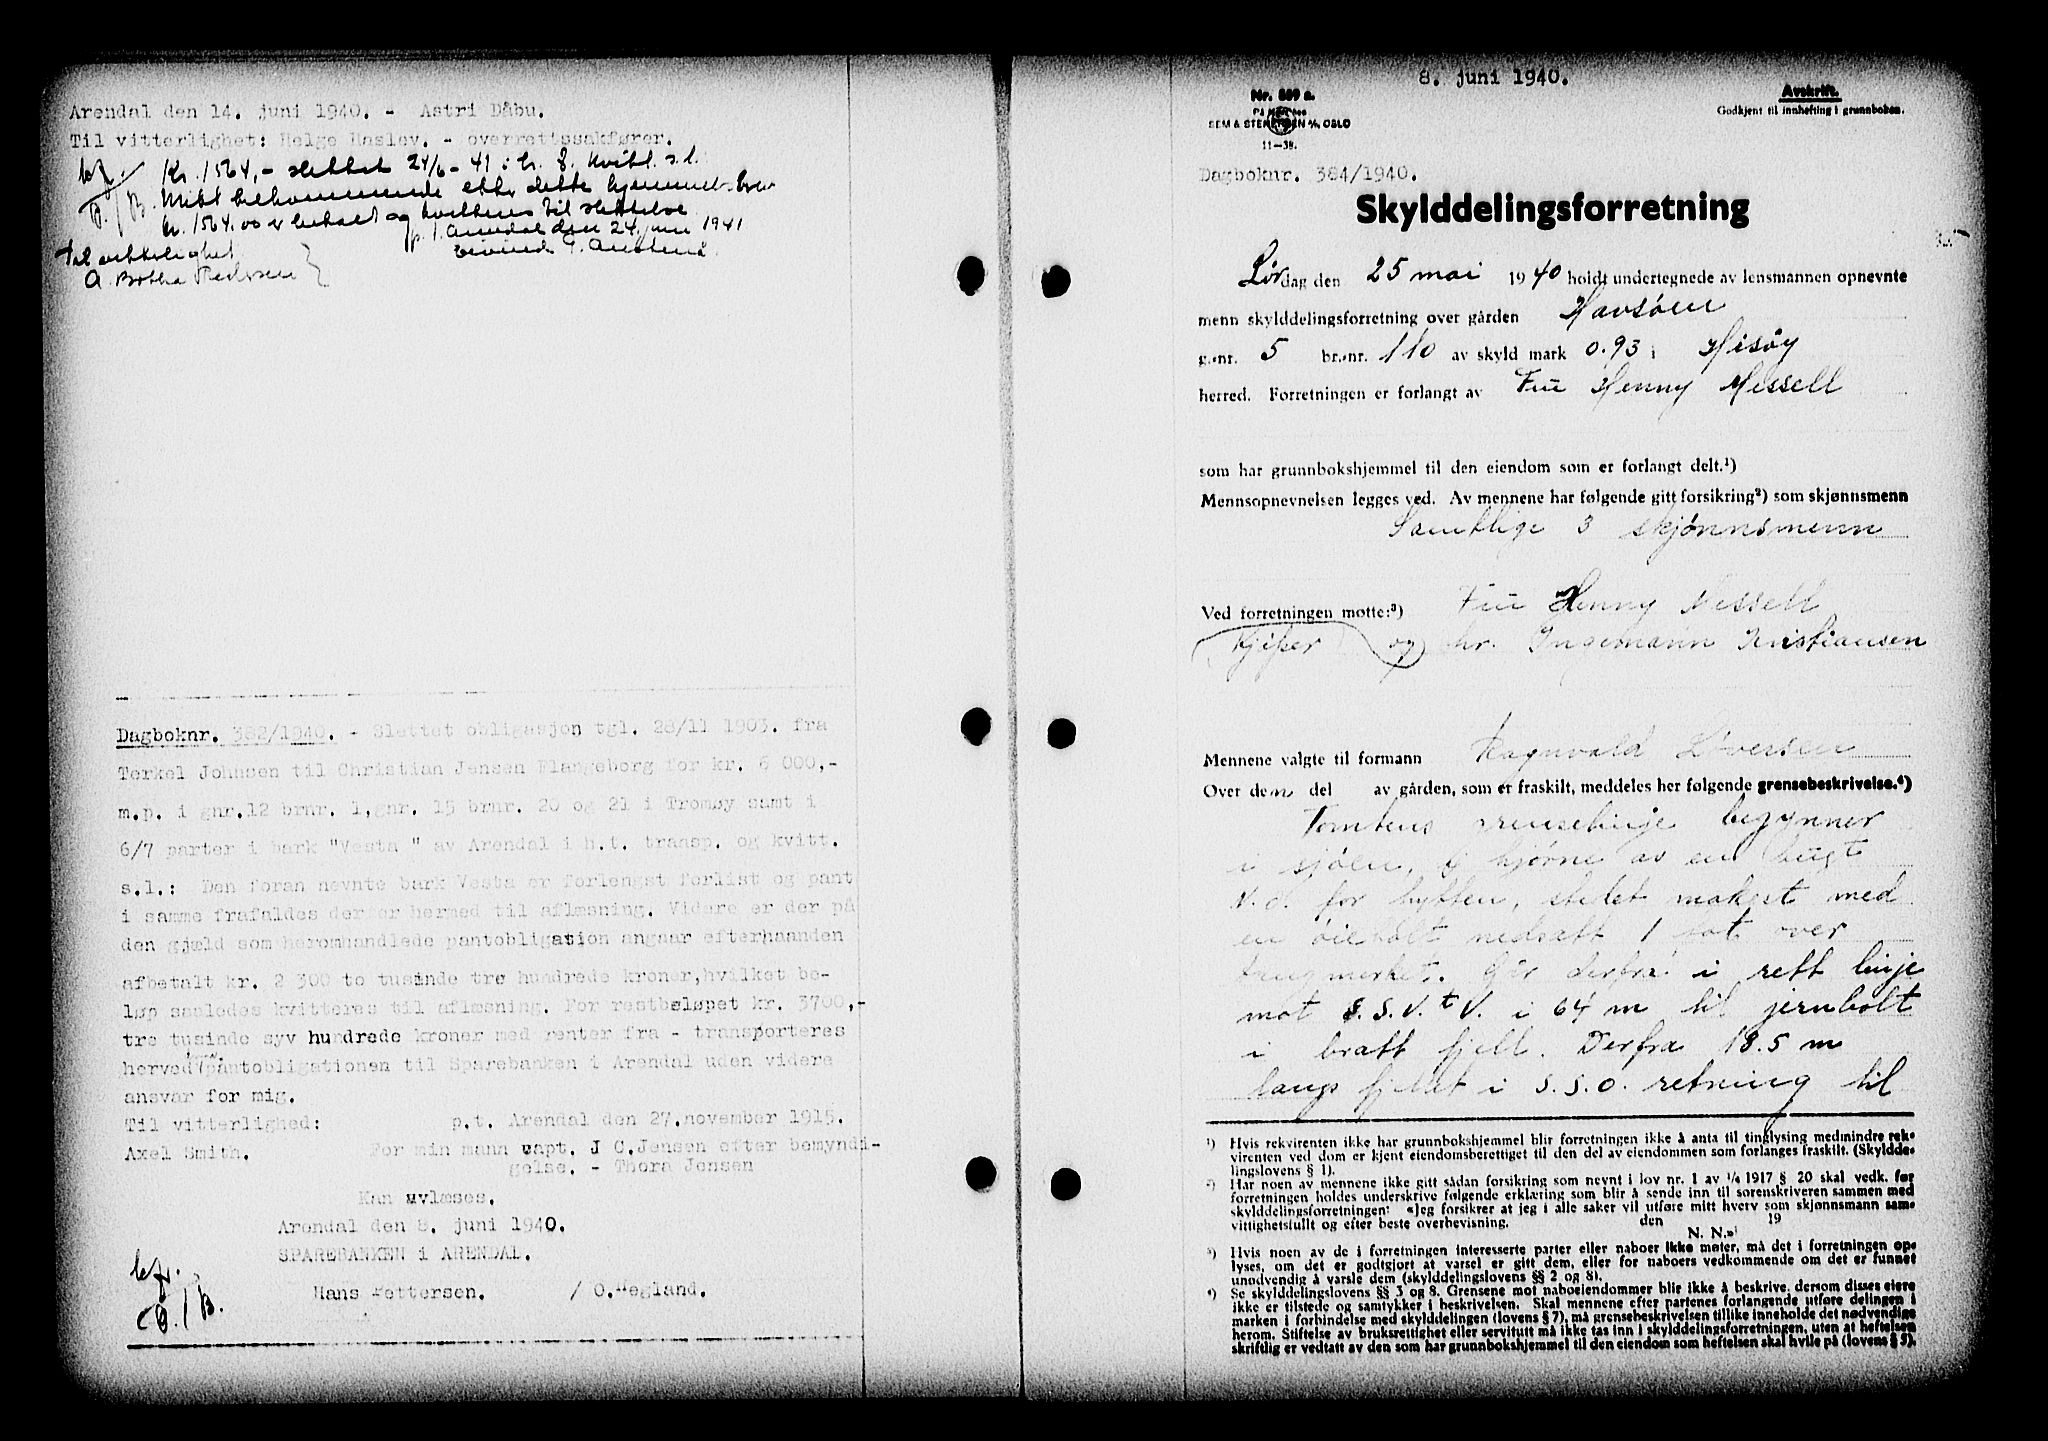 Arendal den 14. juni 1940. - Astri Dåbu.
Til vitterlighet: Helge Haslev. - overrettssakfører.
Kr. 1564,- slettet 24/6 - 41 i h. 8. kvitt. s.l.
Mitt tilkommende etter dette hjemmelsbrev
kr. 1564.00 er betalt og kvitteres til slettelse
p. t. Arendal den 24. juni 1941
Til vitterlighet
Eivind
A. Pedersen
Dagboknr. 382/1940. - Slettet obligasjon tgl. 28/11 1903. fra
Terkel Johnsen til Christian Jensen Flangeborg for kr. 6 000,-
m.p. i gnr.12 brnr. 1,gnr. 15 brnr. 20 og 21 i Tromøy samt i
6/7 parter i bark "Vesta " av Arendal i h.t. transp. og kvitt.
s.l.: Den foran nevnte bark Vesta er forlengst forlist og pant
i samme frafaldes derfor hermed til aflæsning. Videre er der på
den gjæld som heromhandlede pantobligasion angaar efterhaanden
afbetalt kr. 2 300 to tusinde tre hundrede kroner,hvilket be-
løp saaledes kvitteres til aflæsning. For restbeløpet kr. 3700,-
tre tusinde syv hundrede kroner med renter fra - transporteres
herved pantobligationen til Sparebanken i Arendal uden videre
ansvar for mig.
Til vitterlighed: p.t. Arendal den 27.november 1915.
Axel Smith. For min mann capt. J C.Jensen efter bemyndi-
gelse. - Thora Jensen
Kan avlæses.
Arendal den 8. juni 1940.
SPAREBANKEN i ARENDAL.
Hans Pettersen. / O.Hegland.
8. juni 1940.
Nr. 889 a.
SEM & STENERSEN A/S, OSLO
11-38.
Avskrift.
Godkjent til innhefting i grunnboken.
Dagboknr. 384/1940.
Skylddelingsforretning
Lørdag den 25 mai 1940 holdt undertegnede av lensmannen opnevnte
menn skylddelingsforretning over gården Havsøen
g.nr. 5 br.nr. 110 av skyld mark 0.93 i Hisøy
herred. Forretningen er forlangt av Fru Henny Messell
som har grunnbokshjemmel til den eiendom som er forlangt delt.¹)
Mennsopnevnelsen legges ved. Av mennene har følgende gitt forsikring²) som skjønnsmenn
Samtlige 3 skjønnsmenn
Ved forretningen møtte:³) Fru Henny Messell
kjøper og hr. Ingemann Kristiansen
Mennene valgte til formann Ragnvald Iversen
Over den del av gården, som er fraskilt, meddeles her følgende grensebeskrivelse.⁴)
Tomtens grenselinje begynner
i sjøen, hjørne av en bugt
N.O. for hytten, stedet makert med
en øiebolt nedsatt 1 fot over
tangmerket. Går derfra i rett linje
mot S.S.V.t V. i 64 m til jernbolt
i bratt fjell. Derfra 18.5 m
langs fjellet i S.S.O. retning til
¹) Hvis rekvirenten ikke har grunnbokshjemmel blir forretningen ikke å anta til tinglysing medmindre rek-
virenten ved dom er kjent eiendomsberettiget til den del av eiendommen som forlanges fraskilt. (Skyldde-
lingslovens § 1).
²) Har noen av mennene ikke gitt sådan forsikring som nevnt i lov nr. 1 av 1/6 1917 § 20 skal vedk. før
forretningen holdes underskrive følgende erklæring som blir å sende inn til sorenskriveren sammen med
skylddelingsforretningen: «Jeg forsikrer at jeg i alle saker vil utføre mitt hverv som skjønnsmann sam-
vittighetsfullt og efter beste overbevisning. den 19
N. N.»
³) Hvis noen av de i forretningen interesserte parter eller naboer ikke møter, må det i forretningen op-
lyses, om det er godtgjort at varsel er gitt dem, eller for naboers vedkommende om det er funnet
unødvendig å varsle dem (skylddelingslovens §§ 2 og 8).
⁴) Se skylddelingslovens §§ 3 og 8. Grensene mot naboeiendommer blir ikke å beskrive, dersom disses eiere
ikke er tilstede og samtykker i beskrivelsen. Skal mennene efter partenes forlangende utføre delingen i
marken i forbindelse med skylddelingen (lovens § 7), må grensebeskrivelsen tillike inneholde det nødvendige
herom. Stiftelse av bruksrettighet eller servitutt må ikke tas inn i skylddelingsforretningen, uten at heftelsen
skriftlig er vedtatt av den som har grunnbokshjemmel til den eiendom som heftelsen skal hvile på (lovens § 5).